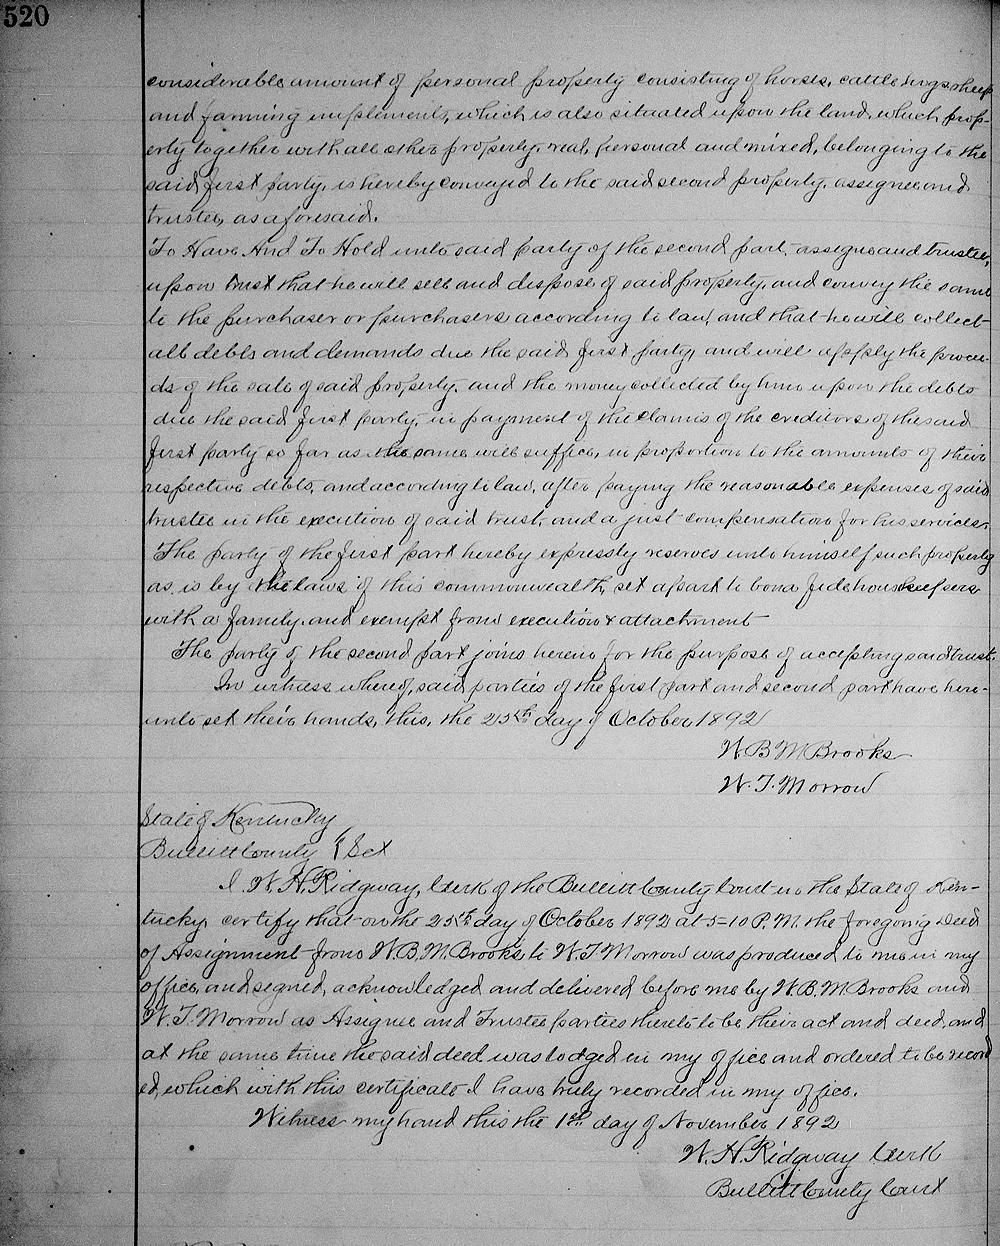 520
considerable amount of personal property consisting of horses, cattle hogs, sheep
and farming implements, which is also situated upon the land, which prop-
erty together with all other property, real, personal and mixed, belonging to the
said first party, is hereby conveyed to the said second property, assignee and
trustee, as aforesaid.
To Have And To Hold unto said party of the second part, assignee and trustee,
upon trust that he will sell and dispose of said property, and convey the same
to the purchaser or purchasers according to law, and that he will collect
all debts and demands due the said first party, and will apply the procee-
ds of the sale of said property, and the money collected by him upon the debts
due the said first party, in payment of the claims of the creditors of the said
first party so far as the same will suffice, in proportion to the amounts of their
respective debts, and according to law, after paying the reasonable expenses of said
trustee in the execution of said trust, and a just compensation for his services.
The party of the first part hereby expressly reserves unto himself such property
as is by the laws of this commonwealth, set apart to bona fide housekeepers
with a family, and exempt from execution & attachment
The party of the second part joins herein for the purpose of accepting said trust.
In witness whereof, said parties of the first part and second part have here-
unto set their hands, this, the 25th day of October 1892
W. B. M. Brooks
W. T. Morrow
State of Kentucky
Bullitt County } Sct
I W. H. Ridgway, Clerk of the Bullitt County Court in the State of Ken-
tucky, certify that on the 25th day of October 1892 at 5-10 P.M. the foregoing Deed
of Assignment from W. B. M. Brooks to W. T. Morrow was produced to me in my
office, and signed, acknowledged and delivered before me by W. B. M. Brooks and
W. T. Morrow as Assignee and Trustee parties thereto to be their act and deed, and
at the same time the said deed was lodged in my office and ordered to be record
ed, which with this certificate I have truly recorded in my office.
Witness my hand this the 1st day of November 1892
W. H. Ridgway Clerk
Bullitt County Court